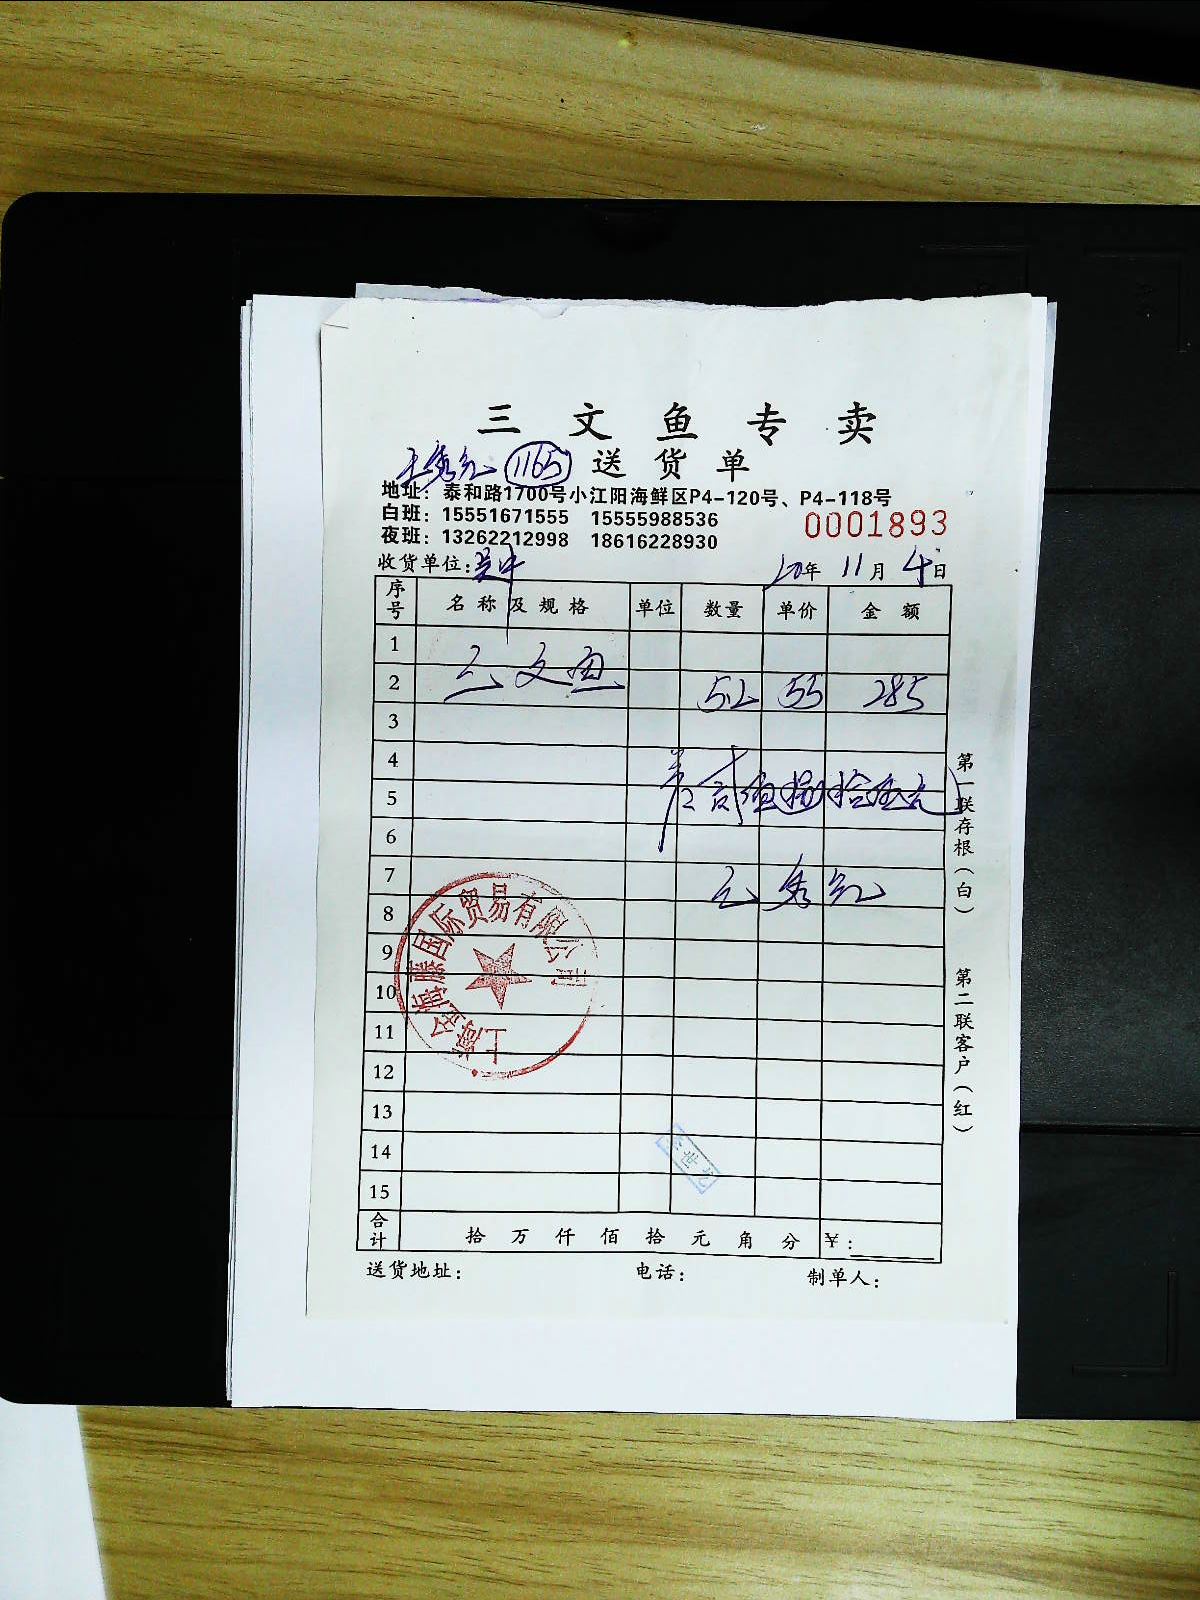 三文鱼专卖
王秀红 1165 送货单
地址：泰和路1700号小江阳海鲜区P4-120号、P4-118号
白班：15551671555 15555988536
夜班：13262212998 18616228930
0001893
收货单位： 20年 11月 4日
序号 名称及规格 单位 数量 单价 金额
1
2 三文鱼 5.2 55 285
3
4
5
6
7 王秀红
8
9
10
11
12
13
14
15
合计 拾 万 仟 佰 拾 元 角 分 ¥：
送货地址： 电话： 制单人：
第一联存根（白）
第二联客户（红）
国际贸易有限公司